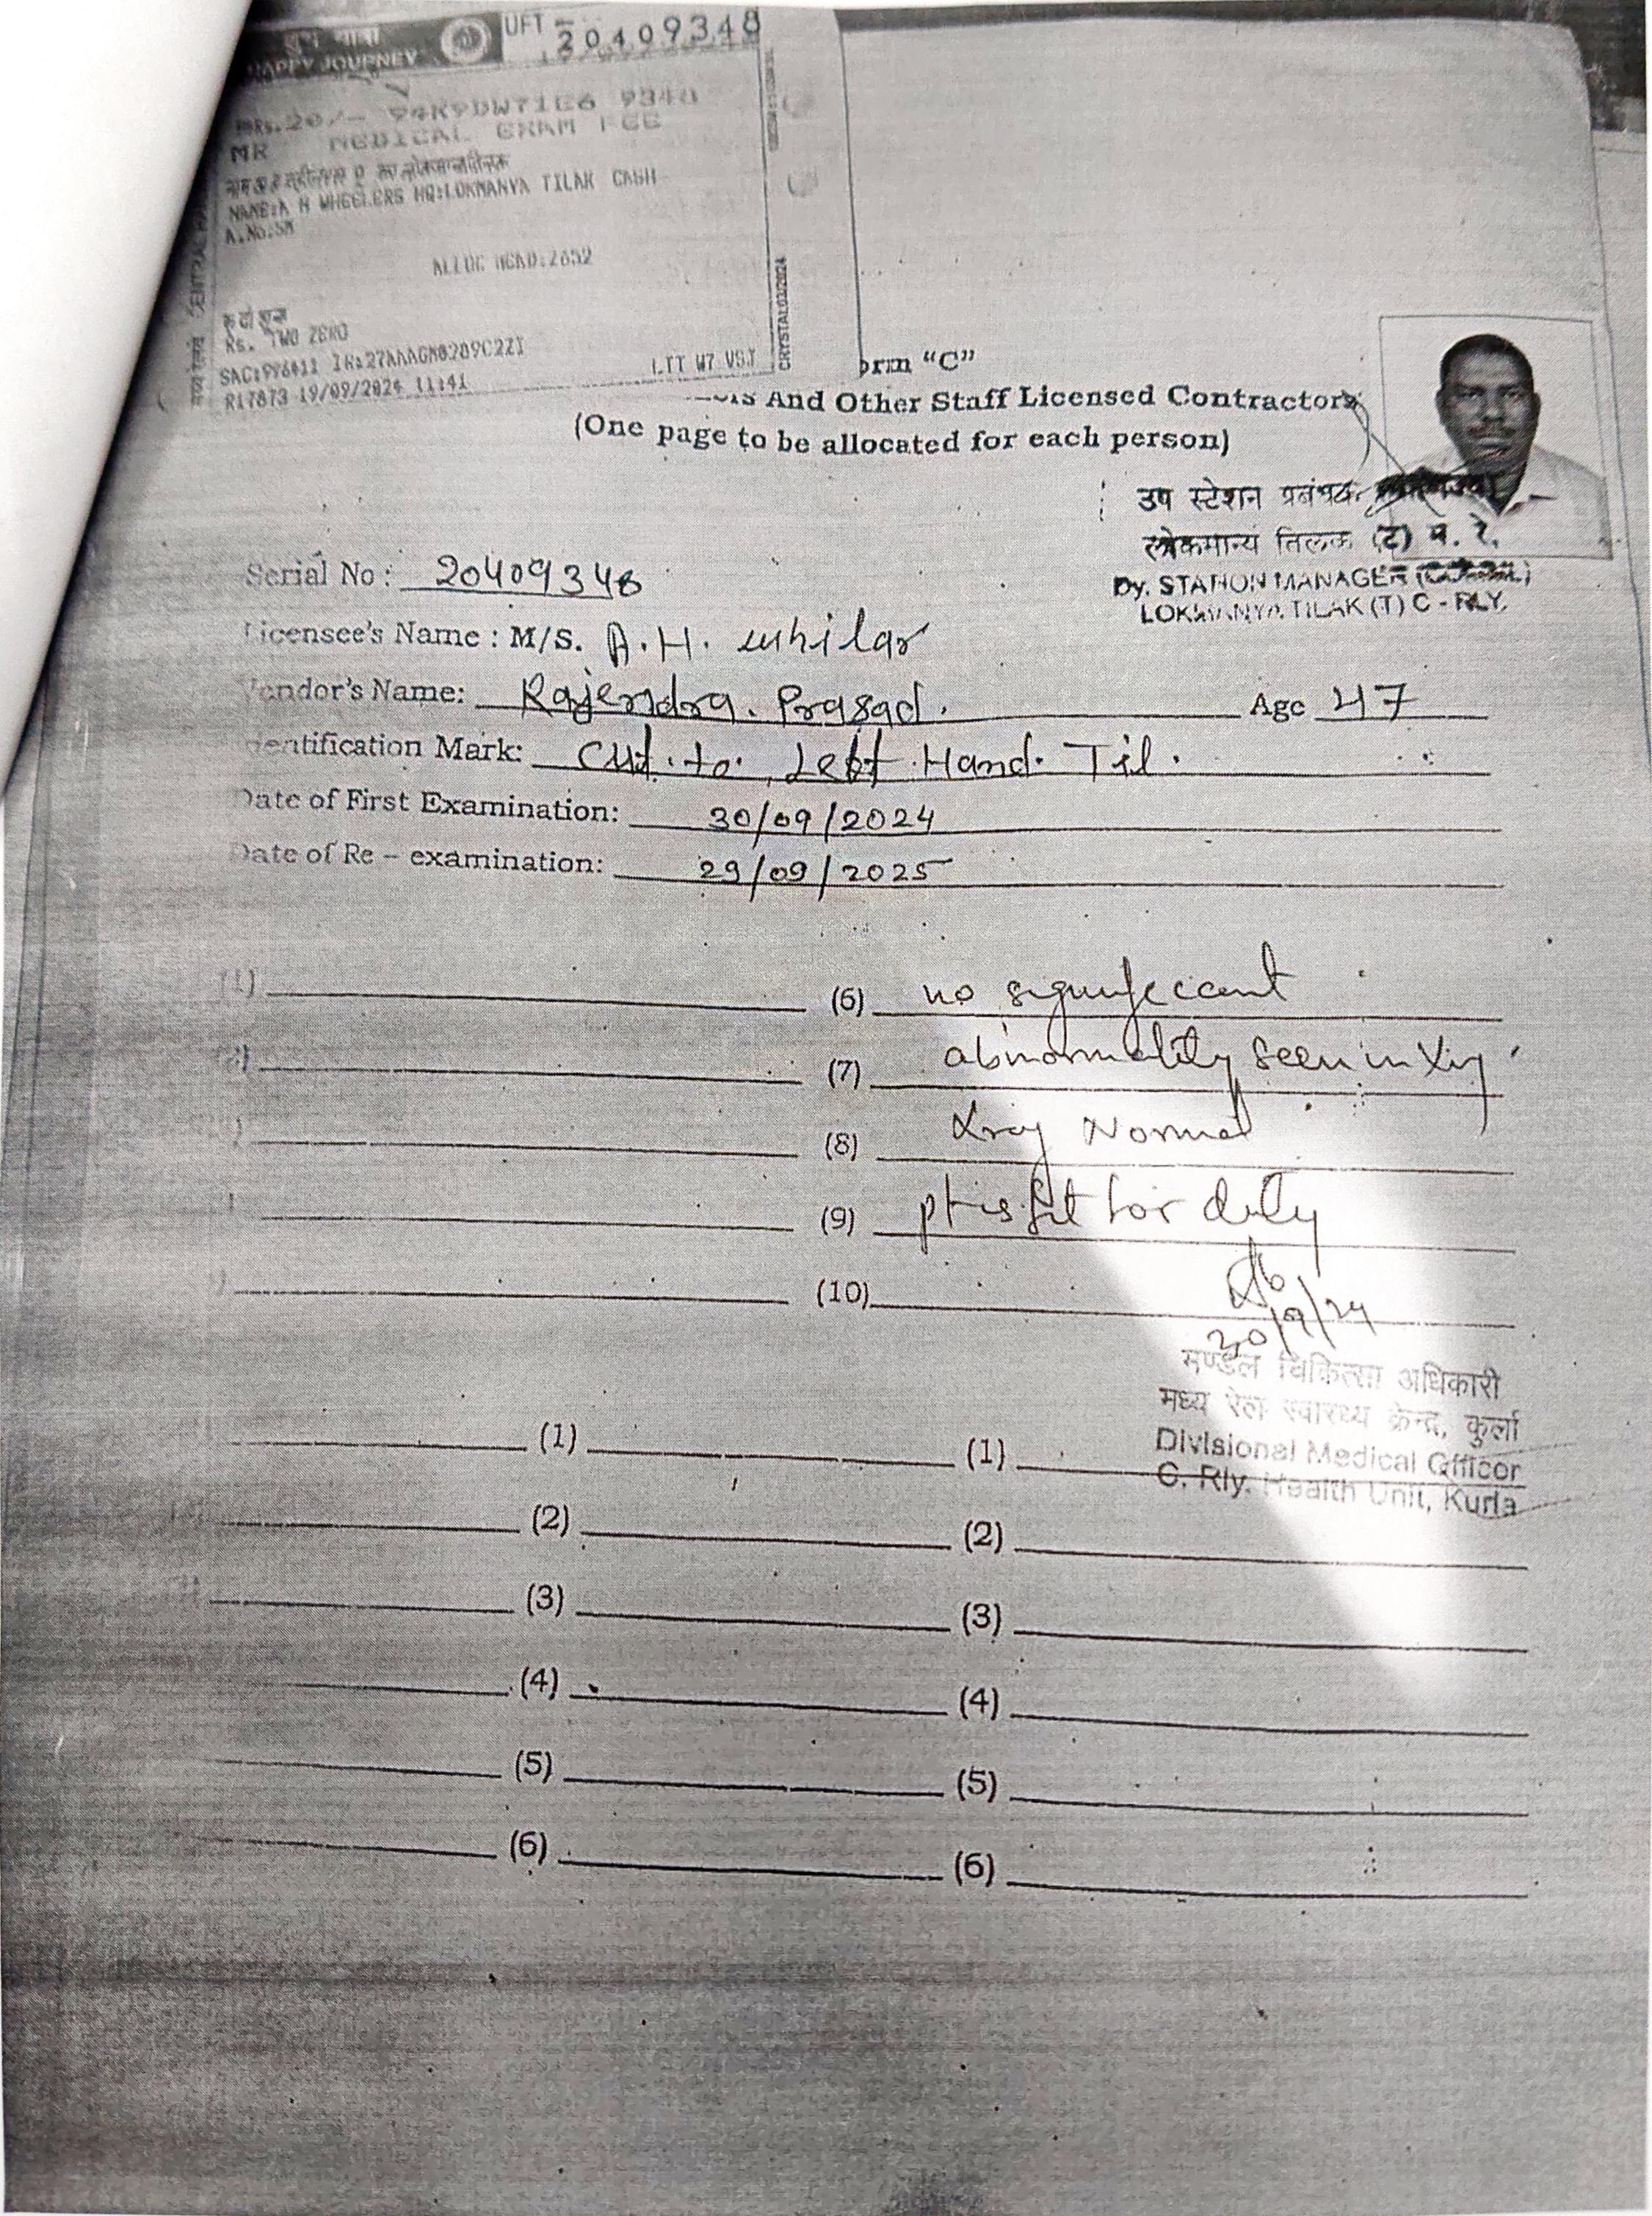 HAPPY JOURNEY
UFT 20409348
Rs.20/- 94K9DW71E6 9348
MR MEDICAL EXAM FEE
NAME:A H WHEELERS HQ:LOKMANYA TILAK CASH
A.No:SM
ALLOC HEAD:2652
Rs. TWO ZERO
SAC:996411 IR:27AAAGM0289C2ZI
R17873 19/09/2024 11:41
LTT W7 VSJ
CRYSTAL03/2024
orm "C"
And Other Staff Licensed Contractors
(One page to be allocated for each person)
उप स्टेशन प्रबंधक
लोकमान्य तिलक (ट) म. रे.
Dy. STATION MANAGER
LOKMANYA TILAK (T) C - RLY.
Serial No : 20409348
Licensee's Name : M/S. A.H. whilar
Vendor's Name: Rajendra. Prasad. Age 47
Identification Mark: Cut. to. Left Hand. Til.
Date of First Examination: 30/09/2024
Date of Re – examination: 29/09/2025
(1) (6) no significant
(7) abnormality seen in Xray
(8) Xray Normal
(9) pt is fit for duty
(10)
30/9/24
मण्डल चिकित्सा अधिकारी
मध्य रेल स्वास्थ्य केन्द्र, कुर्ला
Divisional Medical Officer
C. Rly. Health Unit, Kurla
(1) (1)
(2) (2)
(3) (3)
(4) (4)
(5) (5)
(6) (6)